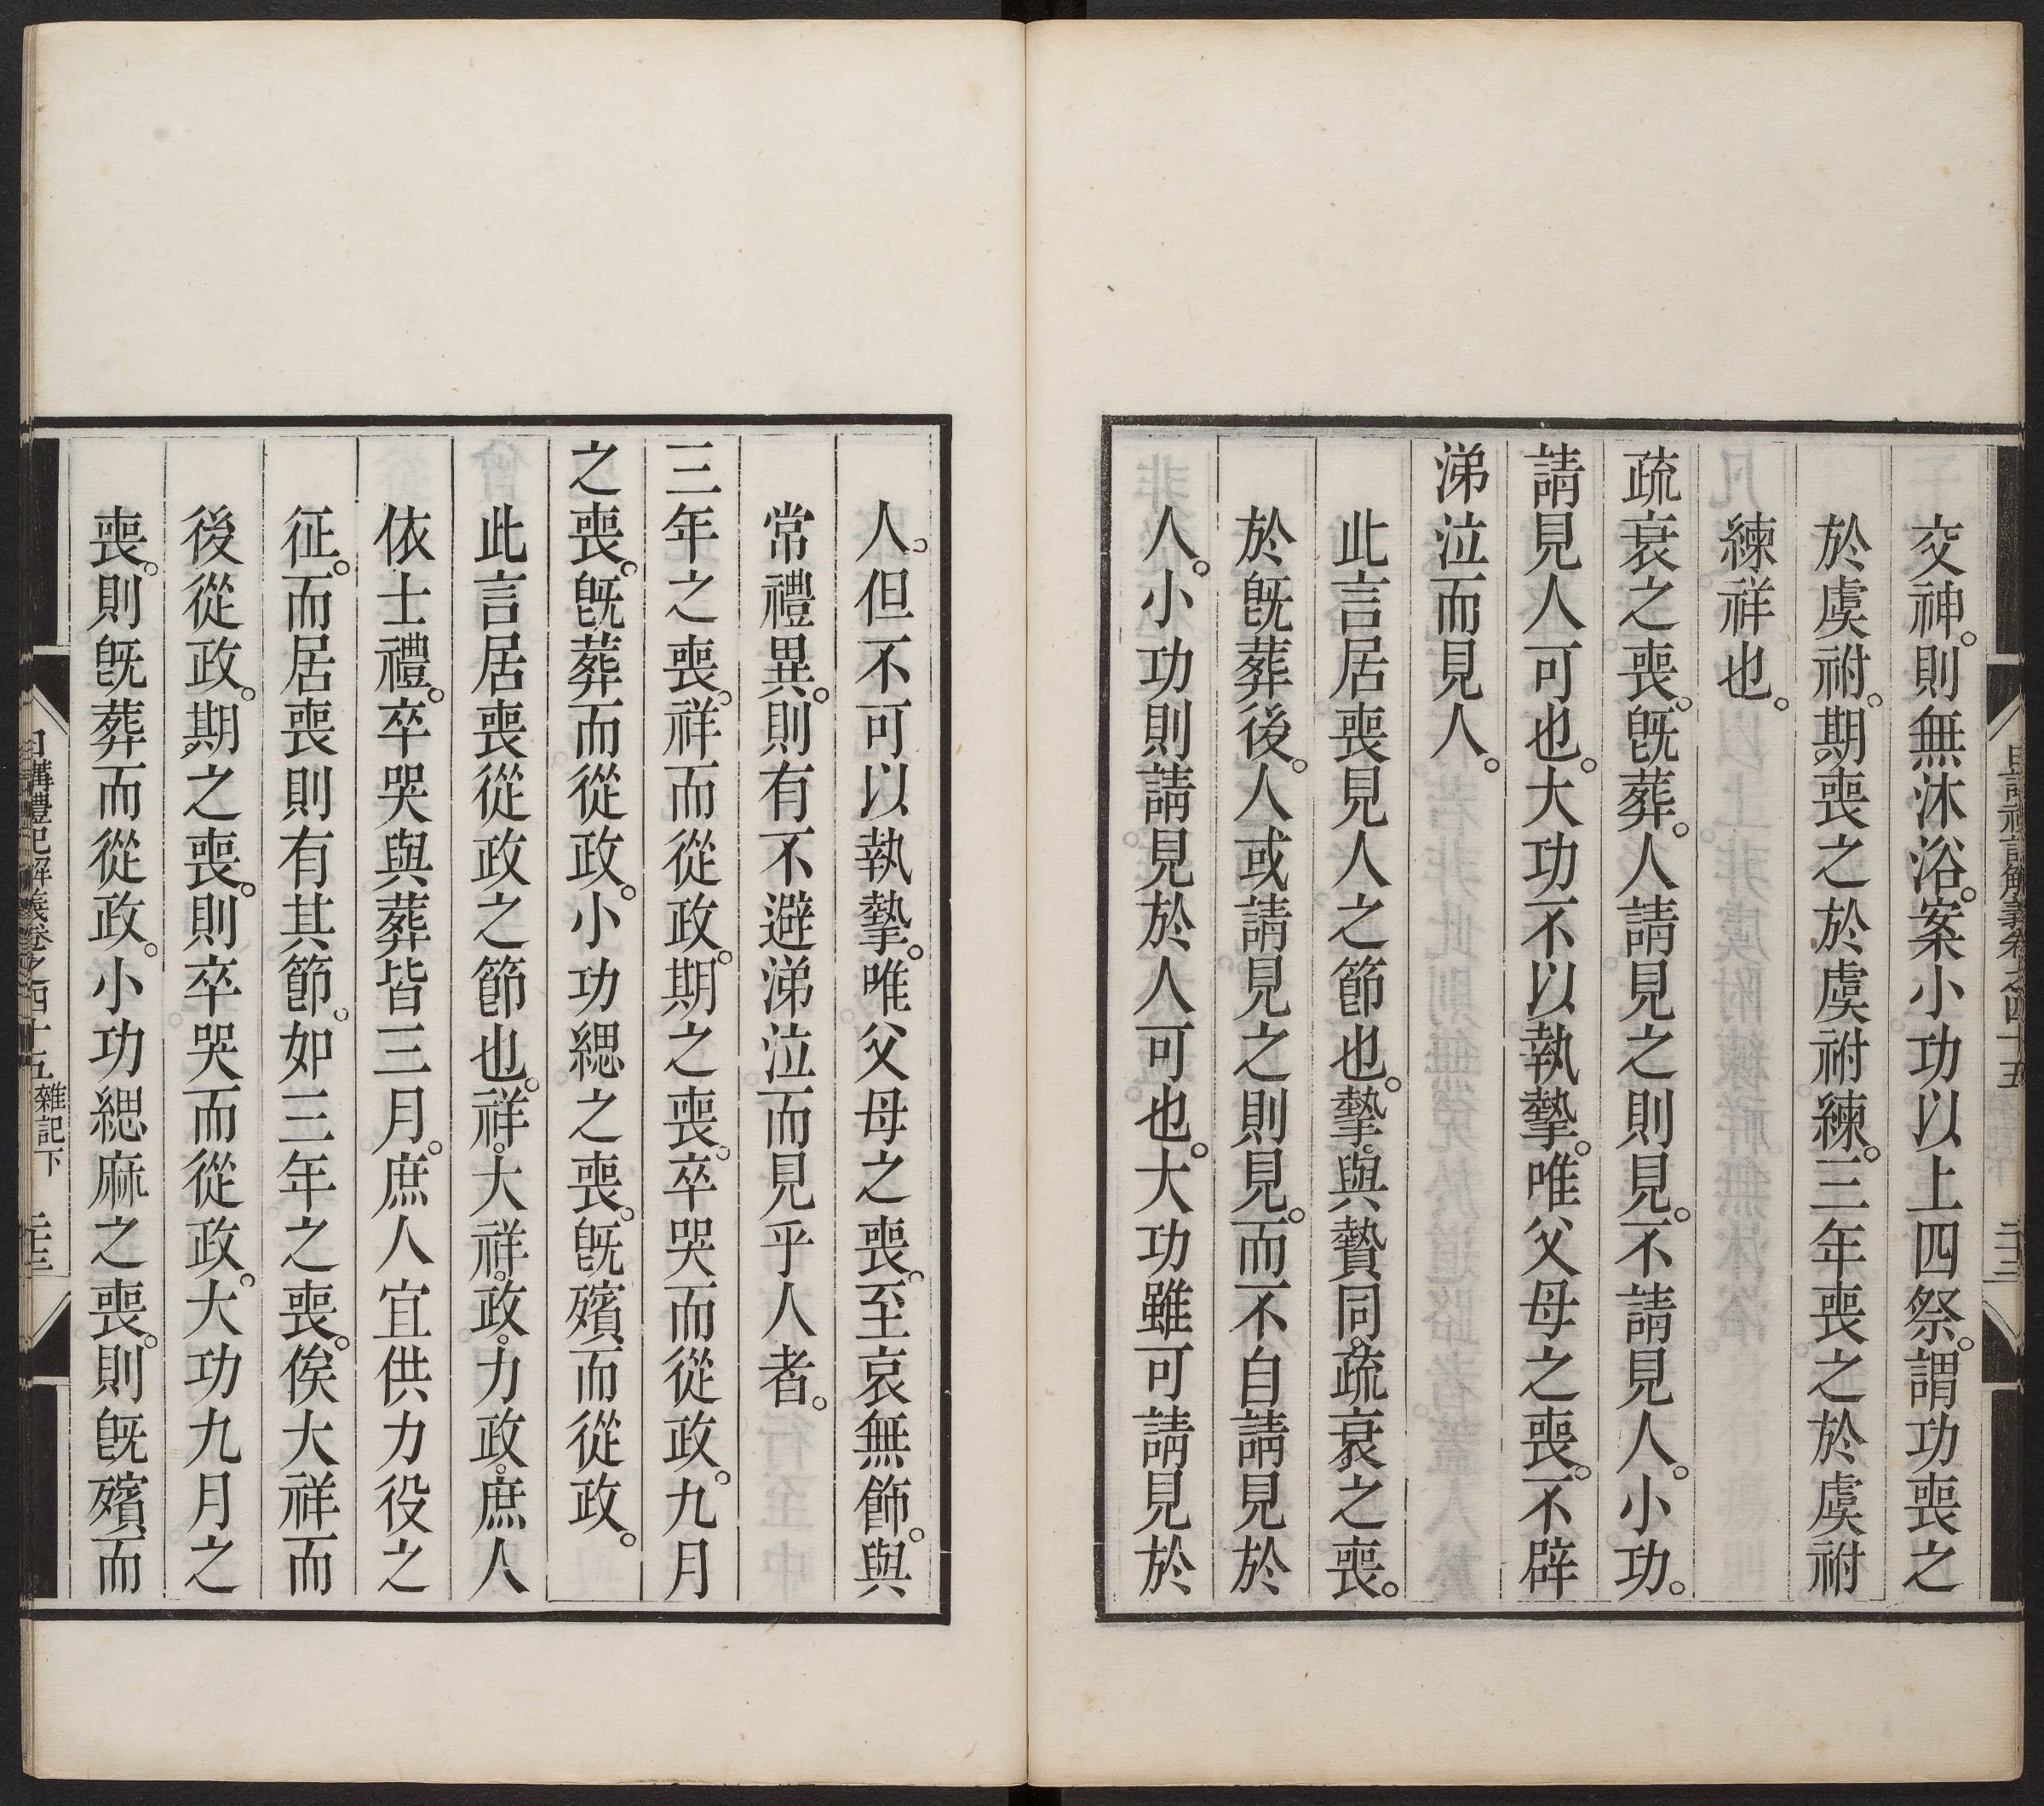 交神。則無沐浴。案小功以上四祭。謂功喪之
於虞祔。期喪之於虞祔練。三年喪之於虞祔
練祥也。
疏衰之喪。旣葬。人請見之則見。不請見人。小功。
請見人可也。大功不以執摯。唯父母之喪。不辟
涕泣而見人。
此言居喪見人之節也。摯。與贄同。疏衰之喪。
於旣葬後。人或請見之則見。而不自請見於
人。小功則請見於人可也。大功雖可請見於
人。但不可以執摯。唯父母之喪。至哀無飾。與
常禮異。則有不避涕泣而見乎人者。
三年之喪。祥而從政。期之喪。卒哭而從政。九月
之喪。旣葬而從政。小功緦之喪。旣殯而從政。
此言居喪從政之節也。祥。大祥。政。力政。庶人
依士禮。卒哭與葬皆三月。庶人宜供力役之
征。而居喪則有其節。如三年之喪。俟大祥而
後從政。期之喪。則卒哭而從政。大功九月之
喪。則旣葬而從政。小功緦麻之喪。則旣殯而
日講禮記解義卷之四十五 雜記下 二十三